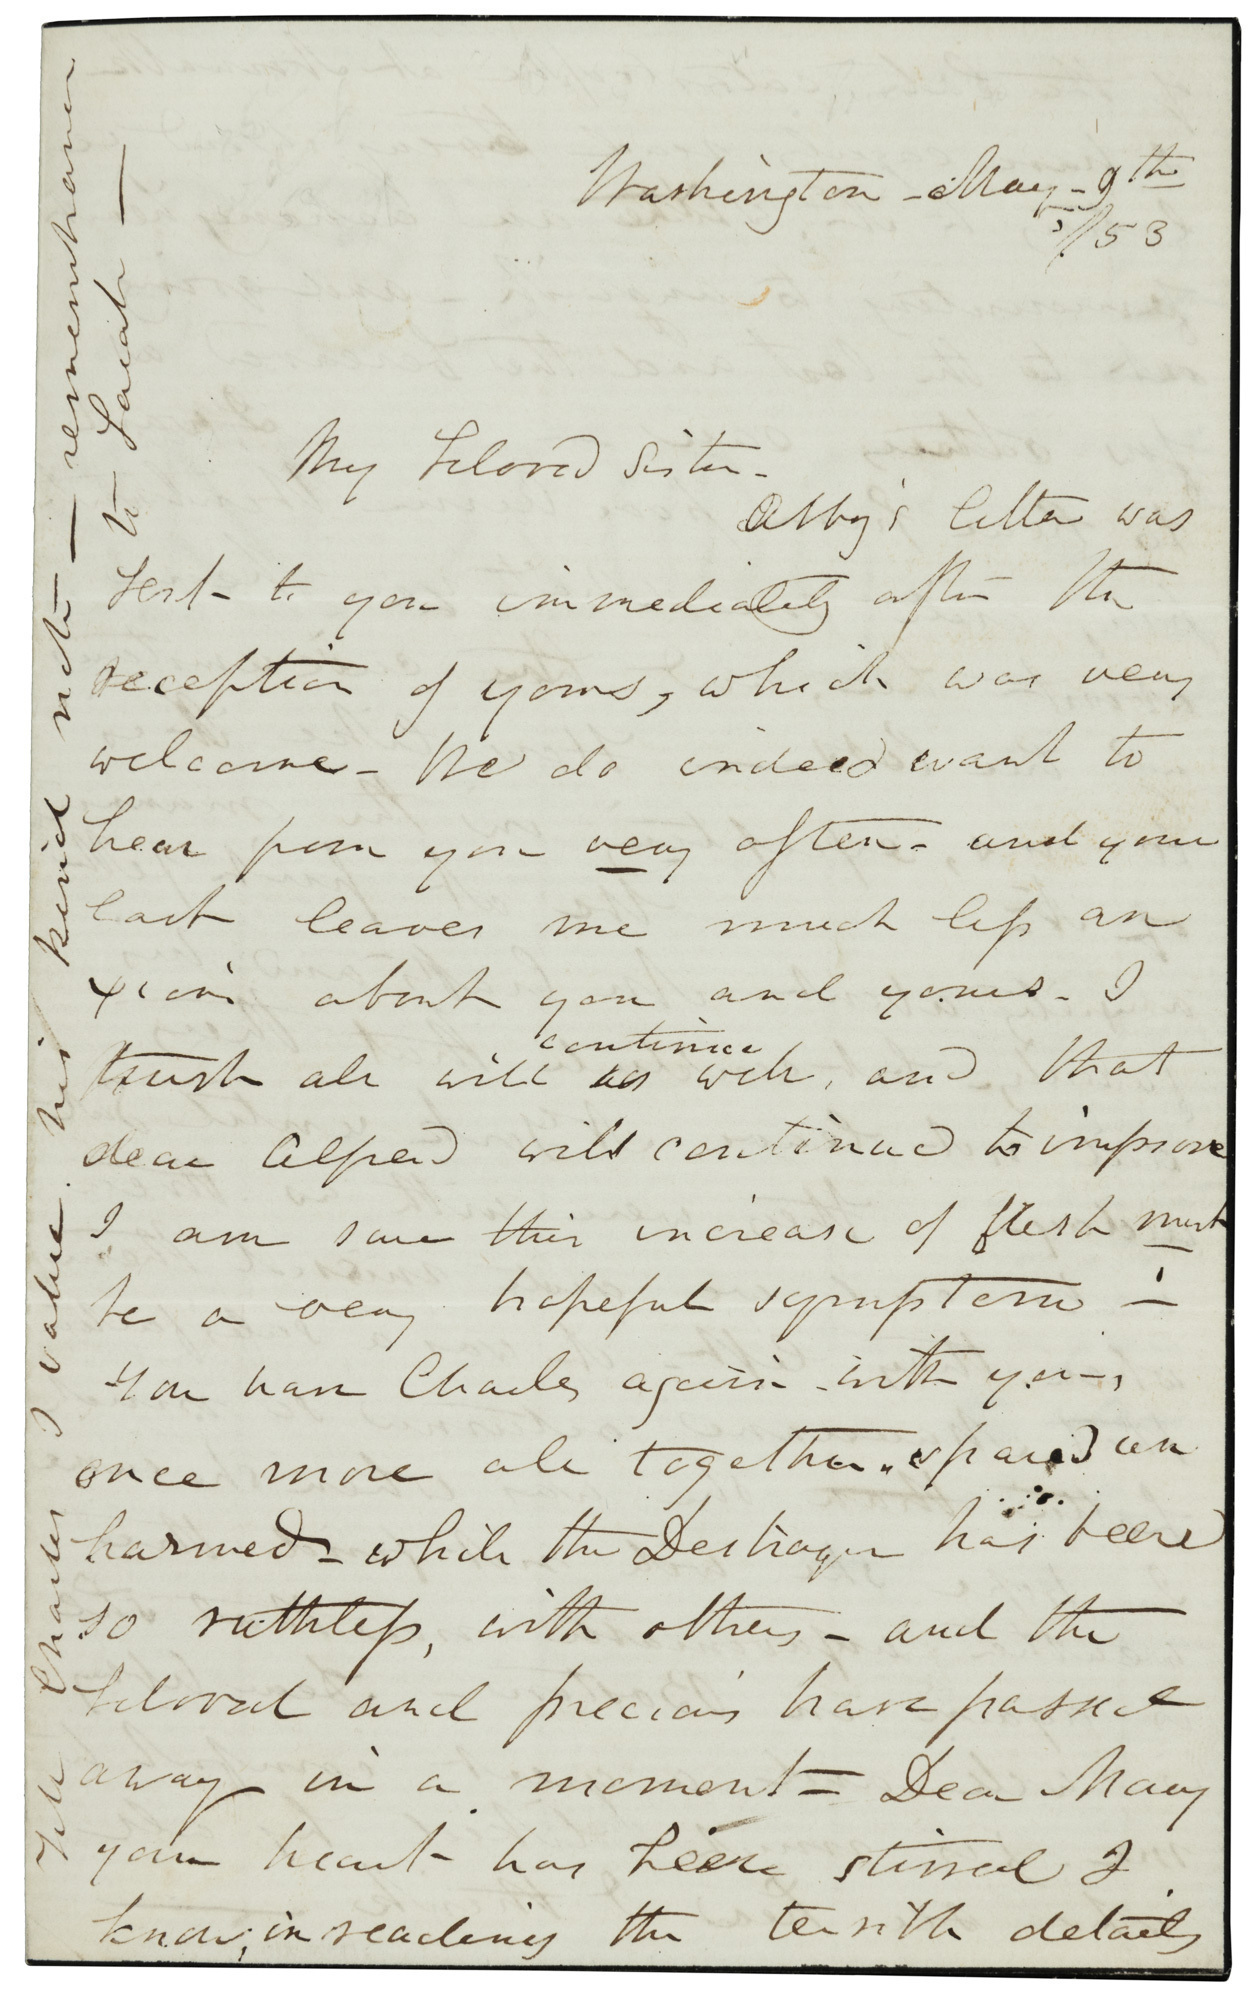 Washington - May - 9th
/53
My beloved Sister -
Abby's letter was
sent to you immediately after the
reception of yours, which was very
welcome - We do indeed want to
hear from you very often - and your
last leaves me much less an
xious about you and yours - I
continue
trust all will as well, and that
dear Alfred will continue to improve
I am sure this increase of flesh must
be a very hopeful symptom -
You have Charles again with you -,
once more all together. spared un
harmed - while the Destroyer has been
so ruthless, with others - and the
beloved and precious have passed
away in a moment - Dear Mary
your heart has been stirred I
know, in reading the terrible details
Tell Charles I value his kind note - remembrance
to Sarah -